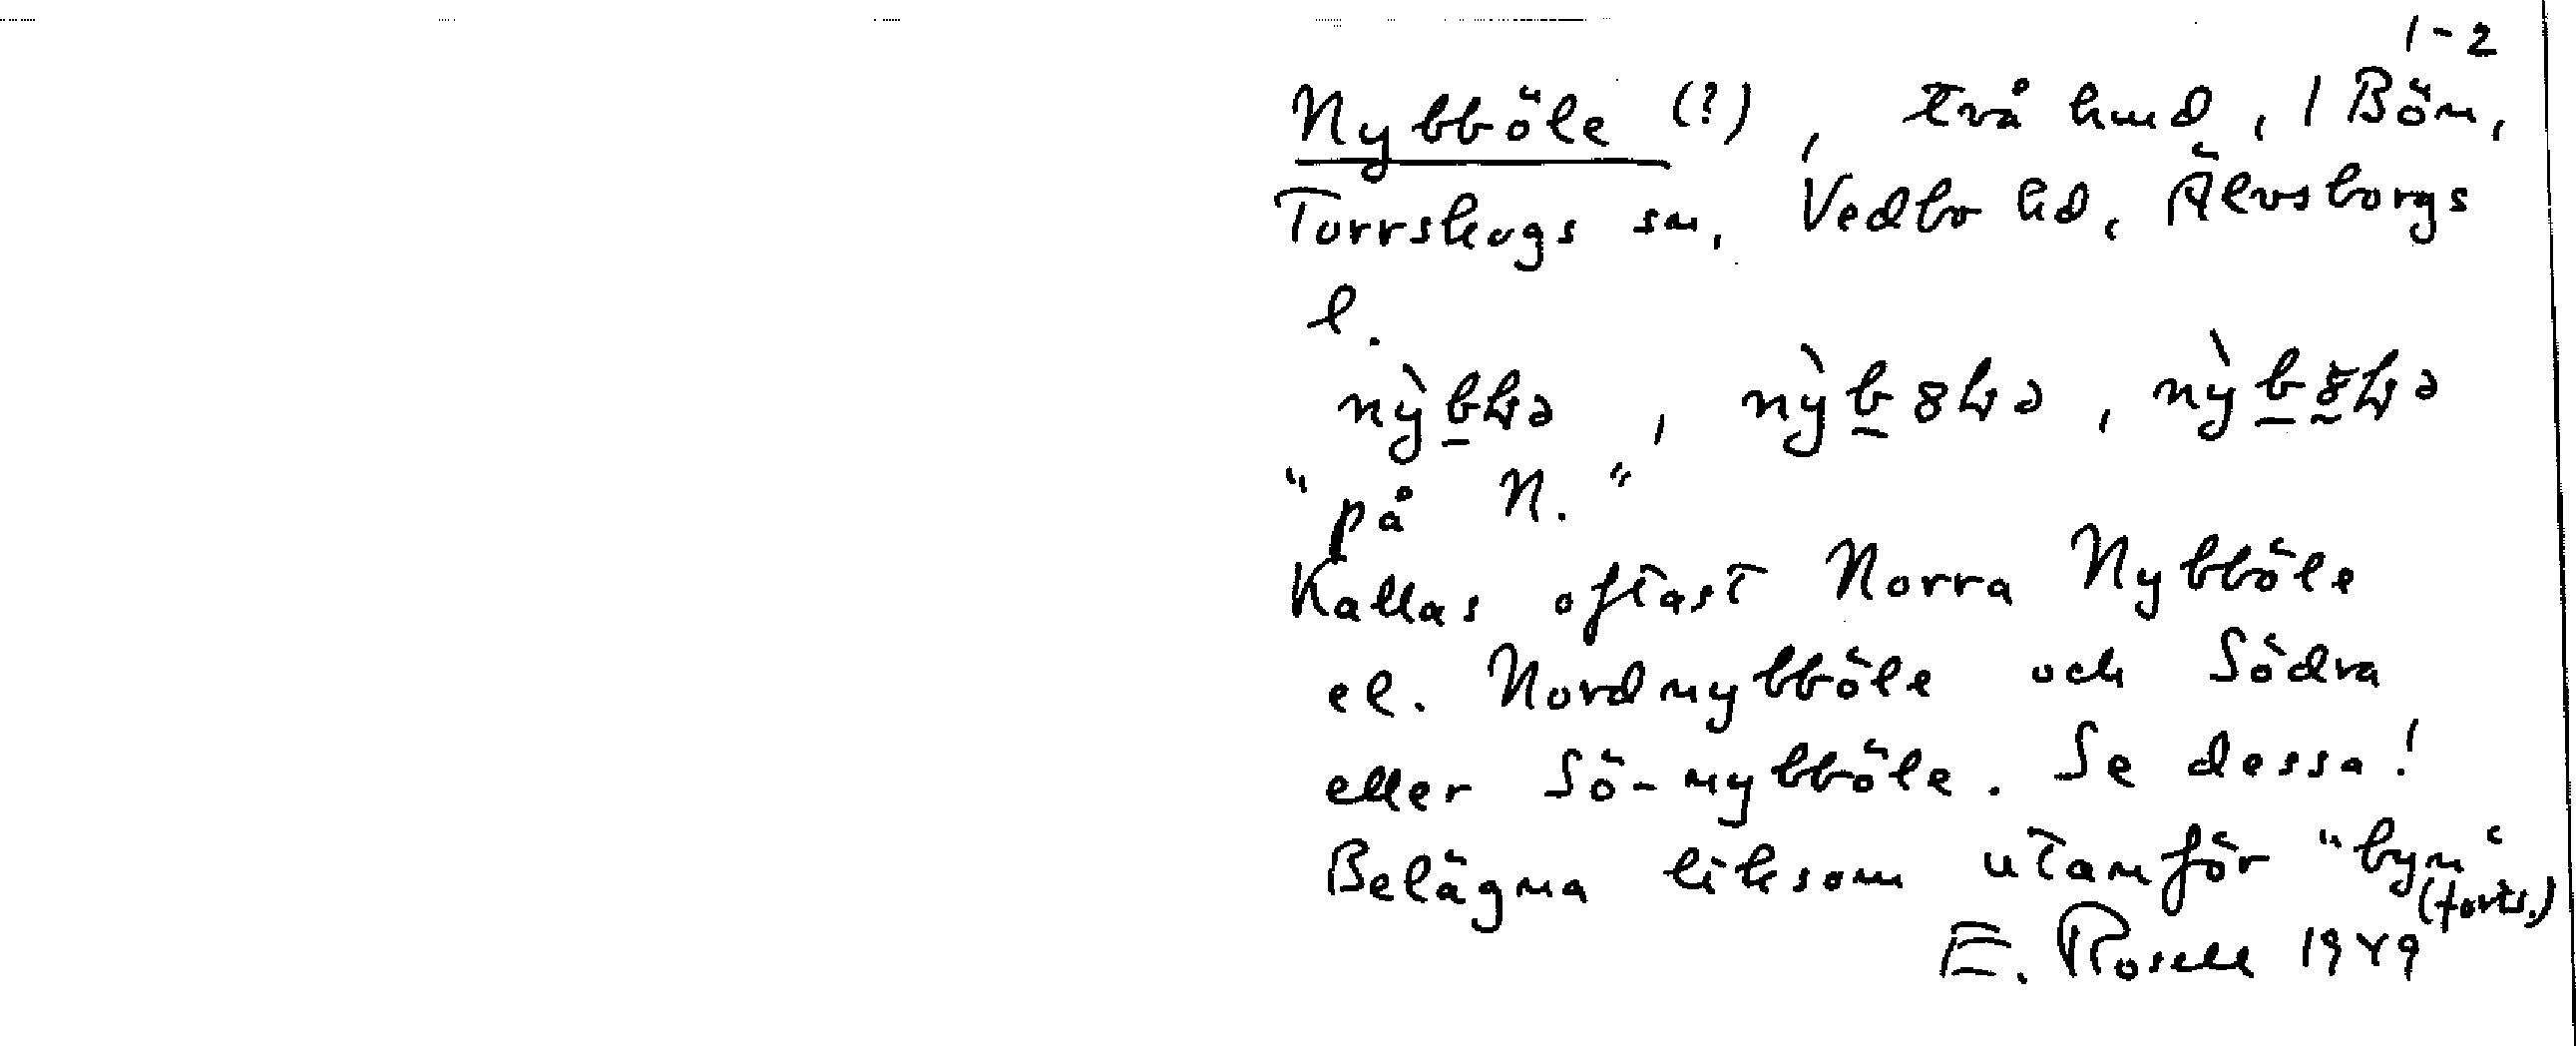 1-2
Nybböle (?), två hmd, 1 Bön,
Torrskogs sn, Vedbo hd, Älvsborgs
l.
"på N."
Kallas oftast Norra Nybböle
el. Nordnybböle och Södra
eller Sö-nybböle. Se dessa!
Belägna liksom utanför "byn"
(forts.)
E. Rosell 1949